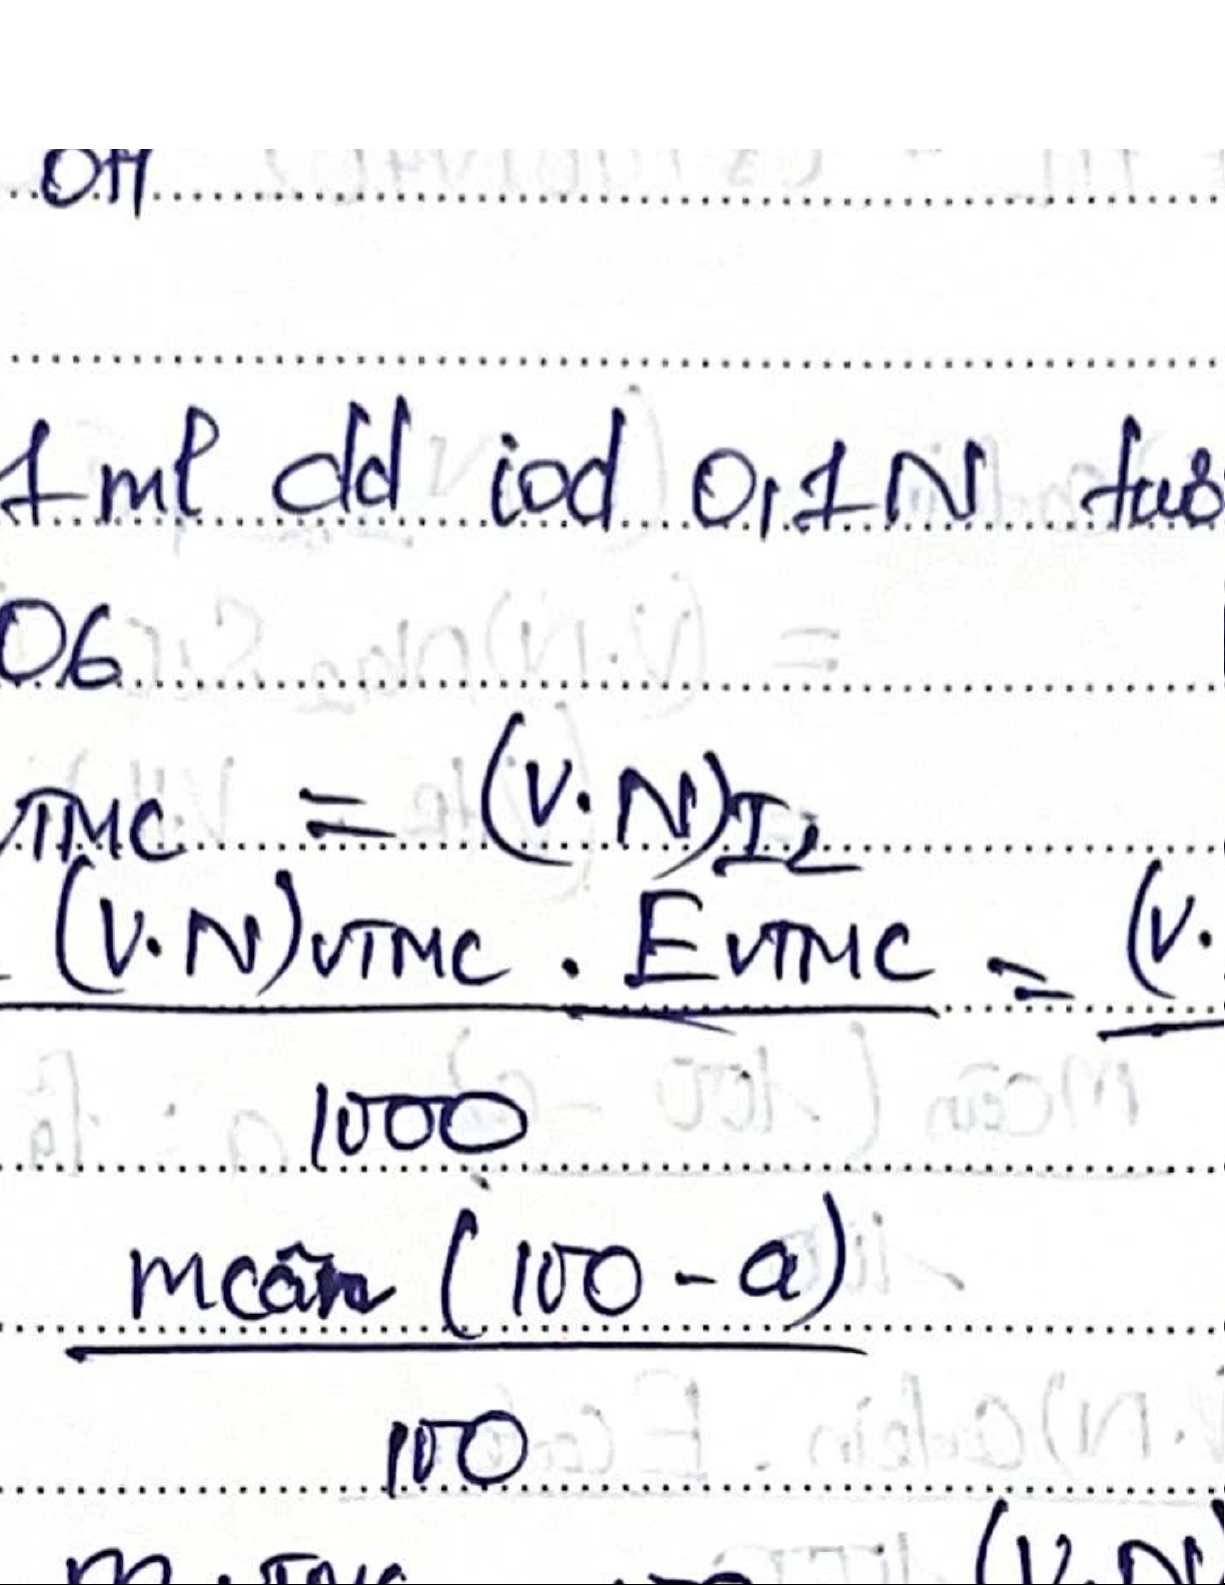 OH
1 ml dd iod 0,1N
06
VTMC = (V.N)I2
(V.N)VTMC . EVTMC = (V.
1000
mcân (100 - a)
100
(V.N)